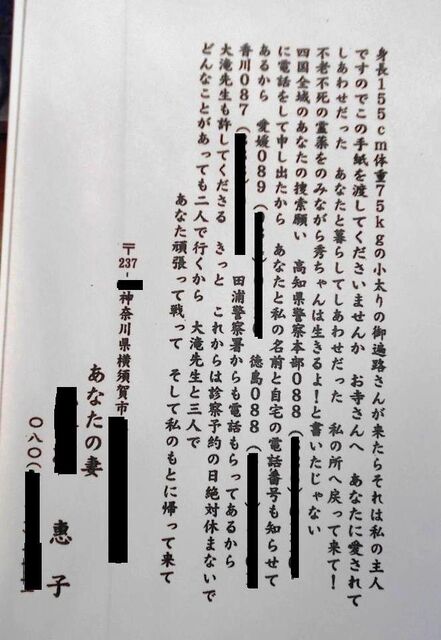 身長155cm体重75kgの小太りの御遍路さんが来たらそれは私の主人
ですのでこの手紙を渡してくださいませんか　お寺さんへ　あなたに愛されて
しあわせだった　あなたと暮らしてしあわせだった　私の所へ戻って来て！
不老不死の霊薬をのみながら秀ちゃんは生きるよ！と書いたじゃない
四国全域のあなたの捜索願い　高知県警察本部088（
に電話をして申し出たから　あなたと私の名前と自宅の電話番号も知らせて
あるから　愛媛089（　徳島088（
香川087（　田浦警察署からも電話もらってあるから
大滝先生も許してくださる　きっと　これからは診察予約の日絶対休まないで
どんなことがあっても二人で行くから　大滝先生と三人で
あなた頑張って戦って　そして私のもとに帰って来て
〒237-　神奈川県横須賀市
あなたの妻
恵子
〇八〇（